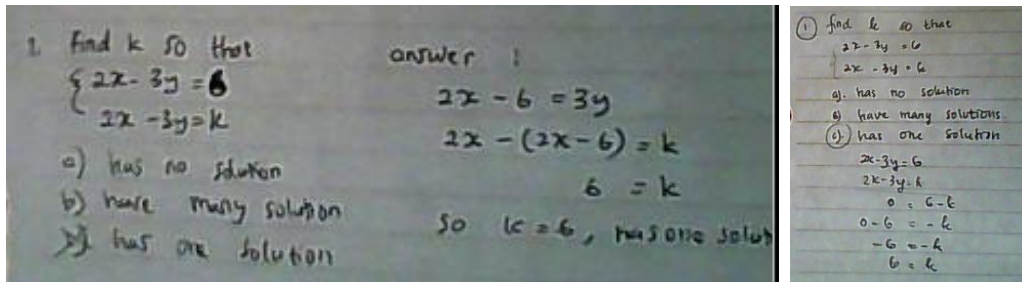 1. find k so that
2x - 3y = 6
2x - 3y = k
a) has no solution
b) have many solution
c) has one solution
answer :
2x - 6 = 3y
2x - (2x - 6) = k
6 = k
So k = 6, has one solut
1 find k so that
2x - 3y = 6
2x - 3y = k
a). has no solution
b) have many solutions.
c) has one solution
2x - 3y = 6
2x - 3y = k
0 = 6 - k
0 - 6 = - k
-6 = - k
6 = k